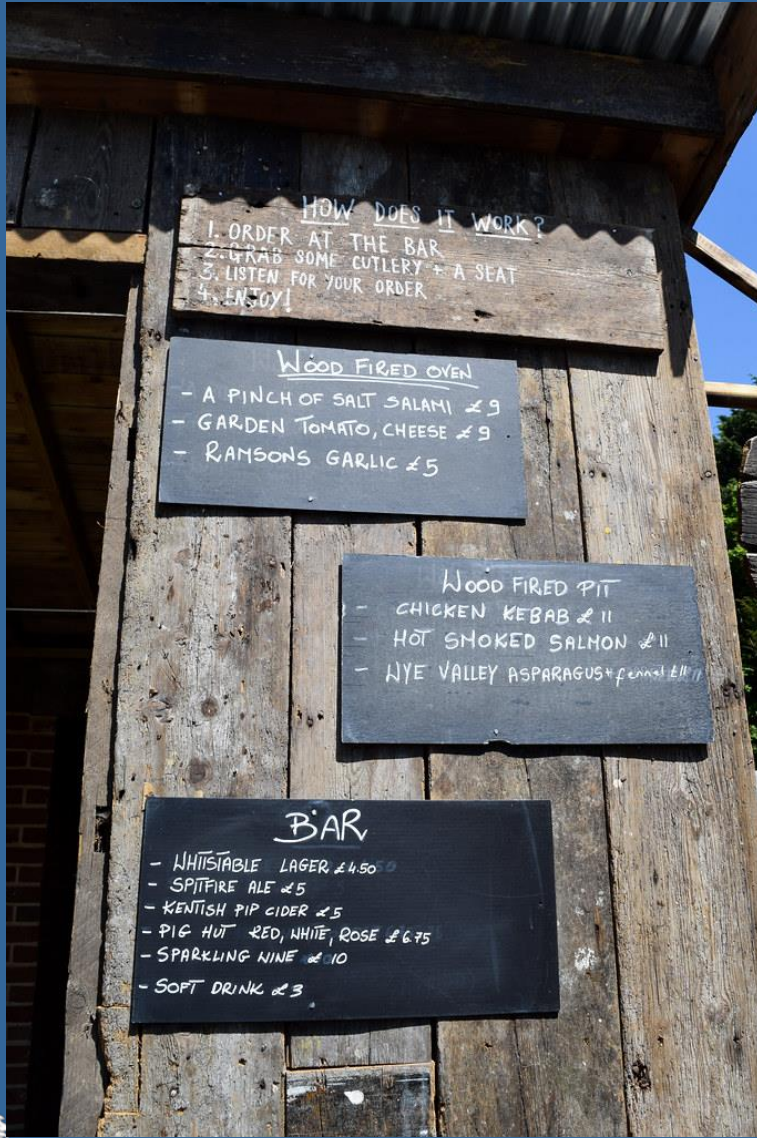 HOW DOES IT WORK?
1. ORDER AT THE BAR
2. GRAB SOME CUTLERY + A SEAT
3. LISTEN FOR YOUR ORDER
4. ENJOY!
WOOD FIRED OVEN
- A PINCH OF SALT SALAMI £9
- GARDEN TOMATO, CHEESE £9
- RAMSONS GARLIC £5
WOOD FIRED PIT
- CHICKEN KEBAB £11
- HOT SMOKED SALMON £11
- WYE VALLEY ASPARAGUS + fennel £11
BAR
- WHITSTABLE LAGER £4.50
- SPITFIRE ALE £5
- KENTISH PIP CIDER £5
- PIG HUT RED, WHITE, ROSE £6.75
- SPARKLING WINE £10
- SOFT DRINK £3